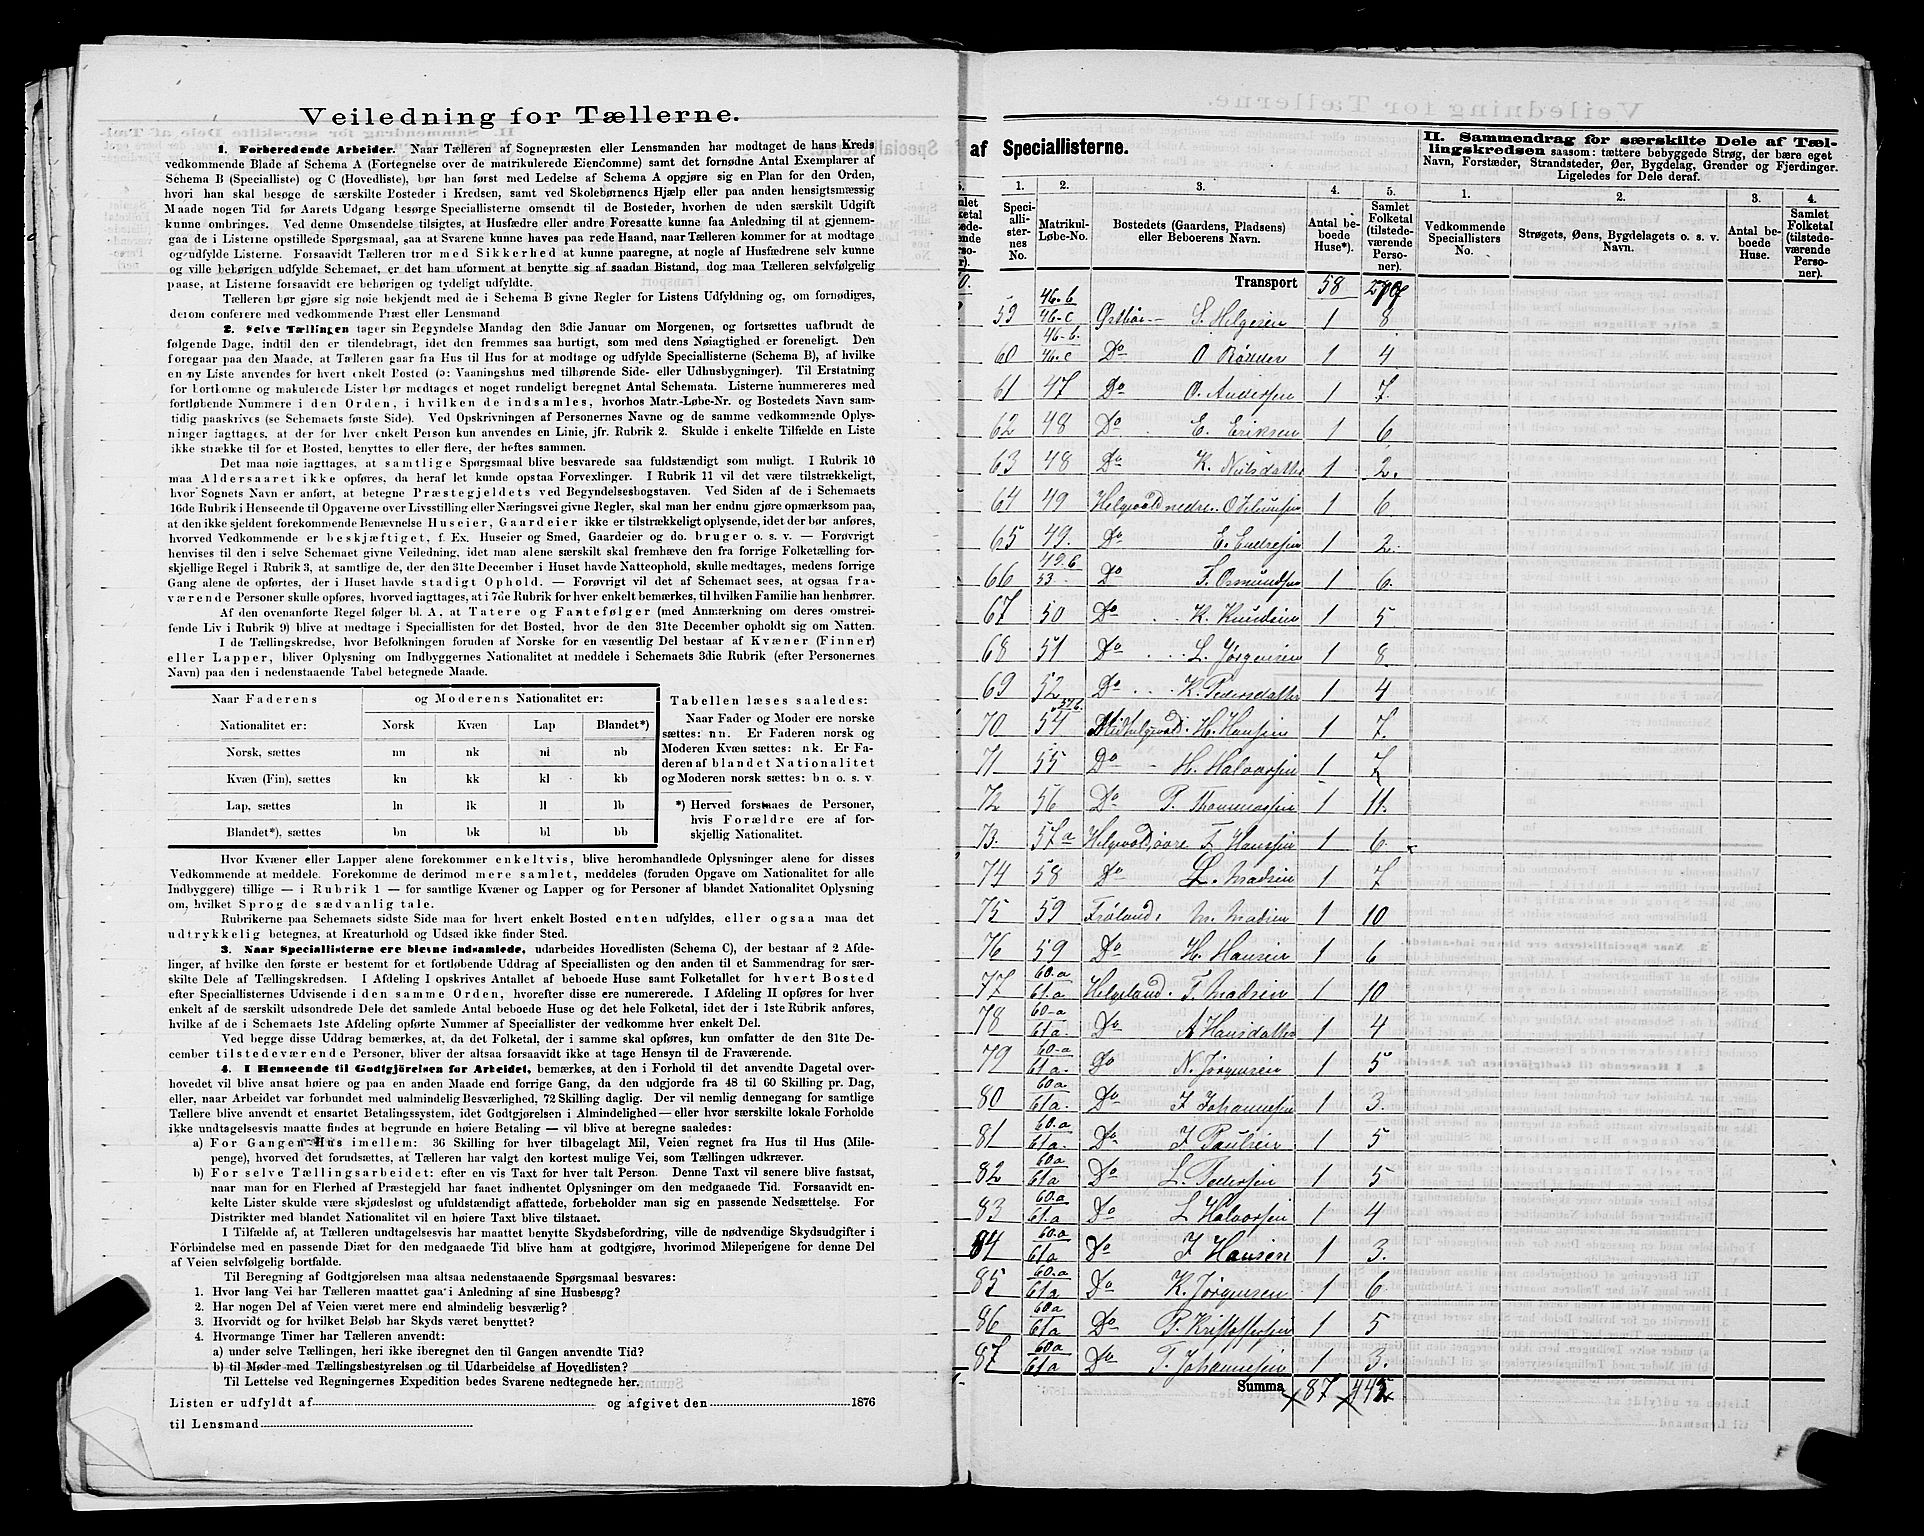 Veiledning for Tællerne.
1. Forberedende Arbeider. Naar Tælleren af Sognepræsten eller Lensmanden har modtaget de hans Kreds
vedkommende Blade af Schema A (Fortegnelse over de matrikulerede Eiendomme) samt det fornødne Antal Exemplarer af
Schema B (Specialliste) og C (Hovedliste), bør han først med Ledelse af Schema A opgjøre sig en Plan for den Orden,
hvori han skal besøge de særskilte Posteder i Kredsen, samt ved Skolebørnenes Hjælp eller paa anden hensigtsmæssig
Maade nogen Tid før Aarets Udgang besørge Speciallisterne omsendt til de Bosteder, hvorhen de uden særskilt Udgift
kunne ombringes. Ved denne Omsendelse tilsigtes, at Husfædre eller andre Foresatte kunne faa Anledning til at gjennem-
gaa de i Listerne opstillede Spørgsmaal, saa at Svarene kunne haves paa rede Haand, naar Tælleren kommer for at modtage
og udfylde Listerne. Forsaavidt Tælleren tror med Sikkerhed at kunne paaregne, at nogle af Husfædrene selv kunne
og ville behørigen udfylde Schemaet, er det ham uforment at benytte sig af saadan Bistand, dog maa Tælleren selvfølgelig
paase, at Listerne forsaavidt ere behørigen og tydeligt udfyldte.
Tælleren bør gjøre sig nøie bekjendt med de i Schema B givne Regler for Listens Udfyldning og, om fornødiges,
derom conferere med vedkommende Præst eller Lensmand
2. Selve Tællingen tager sin Begyndelse Mandag den 3die Januar om Morgenen, og fortsættes uafbrudt de
følgende Dage, indtil den er tilendebragt, idet den fremmes saa hurtigt, som med dens Nøiagtighed er foreneligt. Den
foregaar paa den Maade, at Tælleren gaar fra Hus til Hus for at modtage og udfylde Speciallisterne (Schema B), af hvilke
en ny Liste anvendes for hvert enkelt Posted (ɔ: Vaaningshus med tilhørende Side- eller Udhusbygninger). Til Erstatning
for bortkomne og makulerede Lister bør medtages et noget rundeligt beregnet Antal Schemata. Listerne nummereres med
fortløbende Nummere i den Orden, i hvilken de indsamles, hvorhos Matr.-Løbe-Nr. og Bostedets Navn sam-
tidig paaskrives (se Schemaets første Side). Ved Opskrivningen af Personernes Navne og de samme vedkommende Oplys-
ninger iagttages, at der for hver enkelt Person kun anvendes en Linie, jfr. Rubrik 2. Skulde i enkelte Tilfælde en Liste
ikke strække til for et Bosted, benyttes to eller flere, der heftes sammen.
Det maa nøie iagttages, at samtlige Spørgsmaal blive besvarede saa fuldstændigt som muligt. I Rubrik 10
maa Aldersaaret ikke opføres, da heraf let kunde opstaa Forvexlinger. I Rubrik 11 vil det være tilstrækkeligt,
hvor Sognets Navn er anført, at betegne Præstegjeldets ved Begyndelsesbogstaven. Ved Siden af de i Schemaets
16de Rubrik i Henseende til Opgaverne over Livsstilling eller Næringsvei givne Regler, skal man her endnu gjøre opmærksom paa,
at den ikke sjeldent forekommende Benævnelse Huseier, Gaardeier ikke er tilstrækkeligt oplysende, idet der bør anføres,
hvorved Vedkommende er beskjæftiget, f. Ex. Huseier og Smed, Gaardeier og do. bruger o. s. v. — Forøvrigt
henvises til den i selve Schemaet givne Veiledning, idet man alene særskilt skal fremhæve den fra forrige Folketælling for-
skjellige Regel i Rubrik 3, at samtlige de, der den 31te December i Huset havde Natteophold, skulle medtages, medens forrige
Gang alene de opførtes, der i Huset havde stadigt Ophold. — Forøvrigt vil det af Schemaet sees, at ogsaa fra-
værende Personer skulle opføres, hvorved iagttages, at i 7de Rubrik for hver enkelt bemærkes, til hvilken Familie han henhører.
Af den ovenanførte Regel følger bl. A. at Tatere og Fantefølger (med Anmærkning om deres omstrei-
fende Liv i Rubrik 9) blive at medtage i Speciallisten for det Bosted, hvor de den 31te December opholdt sig om Natten.
I de Tællingskredse, hvor Befolkningen foruden af Norske for en væsentlig Del bestaar af Kvæner (Finner)
eller Lapper, bliver Oplysning om Indbyggernes Nationalitet at meddele i Schemaets 3die Rubrik (efter Personernes
Navn) paa den i nedenstaaende Tabel betegnede Maade.
Naar Faderens og Moderens Nationalitet er:
Nationalitet er: Norsk Kvæn Lap Blandet*)
Norsk, sættes nn nk nl nb
Kvæn (Fin), sættes kn kk kl kb
Lap, sættes ln lk ll lb
Blandet*), sættes bn bk bl bb
Tabellen læses saaledes:
Naar Fader og Moder ere norske
sættes: nn. Er Faderen norsk og
Moderen Kvæn sættes: nk. Er Fa-
deren af blandet Nationalitet
og Moderen norsk sættes: bn o. s. v.
*) Herved forstaaes de Personer,
hvis Forældre ere af for-
skjellig Nationalitet.
Hvor Kvæner eller Lapper alene forekommer enkeltvis, blive heromhandlede Oplysninger alene for disses
Vedkommende at meddele. Forekomme de derimod mere samlet, meddeles (foruden Opgave om Nationalitet for alle
Indbyggere) tillige — i Rubrik 1 — for samtlige Kvæner og Lapper og for Personer af blandet Nationalitet Oplysning
om, hvilket Sprog de sædvanlig tale.
Rubrikerne paa Schemaets sidste Side maa for hvert enkelt Bosted enten udfyldes, eller ogsaa maa det
udtrykkelig betegnes, at Kreaturhold og Udsæd ikke finder Sted.
3. Naar Speciallisterne ere blevne indsamlede, udarbeides Hovedlisten (Schema C), der bestaar af 2 Afde-
linger, af hvilke den første er bestemt for et fortløbende Uddrag af Speciallisten og den anden til et Sammendrag for sær-
skilte Dele af Tællingskredsen. I Afdeling I opskrives Antallet af beboede Huse samt Folketallet for hvert Bosted
efter Speciallisternes Udvisende i den samme Orden, hvorefter disse ere numererede. I Afdeling II opføres for hver
enkelt af de særskilt udsondrede Dele det samlede Antal beboede Huse og det hele Folketal, idet der i 1ste Rubrik anføres,
hvilke af de i Schemaets 1ste Afdeling opførte Nummer af Speciallister der vedkomme hver enkelt Del.
Ved begge disse Uddrag bemærkes, at, da det Folketal, der i samme skal opføres, kun omfatter de den 31te De-
cember tilstedeværende Personer, bliver der altsaa forsaavidt ikke at tage Hensyn til de Fraværende.
4. I Henseende til Godtgjörelsen for Arbeidet, bemærkes, at den i Forhold til det anvendte Dagetal over-
hovedet vil blive ansat høiere og paa en anden Maade end forrige Gang, da den udgjorde fra 48 til 60 Skilling pr. Dag,
eller, naar Arbeidet var forbundet med ualmindelig Besværlighed, 72 Skilling daglig. Der vil nemlig dennegang for samtlige
Tællere blive anvendt et ensartet Betalingssystem, idet Godtgjørelsen i Almindelighed — eller hvor særskilte lokale Forholde
ikke undtagelsesvis maatte findes at begrunde en høiere Betaling — vil blive at beregne saaledes:
a) For Gangen Hus imellem: 36 Skilling for hver tilbagelagt Mil, Veien regnet fra Hus til Hus (Mile-
penge), hvorved det forudsættes, at Tælleren har valgt den kortest mulige Vei, som Tællingen udkræver.
b) For selve Tællingsarbeidet: efter en vis Taxt for hver talt Person. Denne Taxt vil senere blive fastsat,
naar man for en Flerhed af Præstegjeld har faaet indhentet Oplysninger om den medgaaede Tid. Forsaavidt en-
kelte Lister skulde være skjødesløst og ufuldstændigt affattede, forbeholder man sig en passende Nedsættelse. For
Distrikter med blandet Nationalitet vil en høiere Taxt blive tilstaaet.
I Tilfælde af, at Tælleren undtagelsesvis har maattet benytte Skydsbefordring, ville de nødvendige Skydsudgifter i
Forbindelse med en passende Diæt for den medgaaede Tid blive ham at godtgjøre, hvorimod Milepengene for denne Del
af Veien selvfølgelig bortfalde.
Til Beregning af Godtgjørelsen maa altsaa nedenstaaende Spørgsmaal besvares:
1. Hvor lang Vei har Tælleren maattet gaa i Anledning af sine Husbesøg?
2. Har nogen Del af Veien været mere end almindelig besværlig?
3. Hvorvidt og for hvilket Beløb har Skyds været benyttet?
4. Hvormange Timer har Tælleren anvendt:
a) under selve Tællingen, heri ikke iberegnet den til Gangen anvendte Tid?
b) til Møder med Tællingsbestyrelsen og til Udarbeidelse af Hovedlisten?
Til Lettelse ved Regningernes Expedition bedes Svarene nedtegnede her.
Listen er udfyldt af og afgivet den 1876
til Lensmand
af Speciallisterne.
1. 2. 3. 4. 5.
Speci-alli-ster-nes No. Matrikul-Løbe-No. Bostedets (Gaardens, Pladsens) eller Beboerens Navn. Antal be-boede Huse*). Samlet Folketal (tilstede-værende Perso-ner).
Transport 58
59 46-b 46-c Østbø S. Helgesen 1 8
60 46-b. 46-c Do O Rönnen 1 4
61 47 Do O. Andersen 1 7.
62 48 Do E. Eriksen 1 6.
63 48 Do K. Nilsdatter 1 2.
64 49 Helgevold nedre 1 6
65 49. Do E. Endresen 1 2.
66 49.b 53 Do S. Osmundsen 1 6.
67 50 Do K. Knudsen 1 5
68 51 Do L. Jørgensen 1 8
69 52 Do K. Pedersdatter 1 4
70 54 57b. Midhelgevold H. Hansen 1 7.
71 55 Do H. Halvorsen 1 7
72 56 Do P. Thommassen 1 11.
73. 57a Helgevold, øvre T Hanssen 1 6.
74 58 Do L. Madsen 1 7
75 59 Frøland, M. Madsen 1 10
76 59 Do H. Hansen 1 6
77 60.a 61.a Helgeland. T. Madsen 1 10
78 60-a 61a Do A Hansdatter 1 4
79 60-a 61a. Do N. Jørgensen 1 5
80 60a. 61a. Do J Johannesen 1 3.
81 60.a 61a. Do J Paulsen 1 5
82 60a 61a Do L. Pedersen 1 5
83 60.a 61.a Do L Halvorsen 1 4
84 60.a 61a Do J Hansen 1 3.
85 60.a 61a Do K. Jørgensen 1 6
86 60a 61a Do P. Kristoffersen 1 5
87 60a 61a Do T. Johannesen 1 3.
Summa 87 445
II. Sammendrag for særskilte Dele af Tæl-
lingskredsen saasom: tættere bebyggede Strøg, der bære eget
Navn, Forstæder, Strandsteder, Øer, Bygdelag, Grender og Fjerdinger.
Ligeledes for Dele deraf.
1. 2. 3. 4.
Vedkommende Speciallisters No. Strøgets, Øens, Bygdelagets o. s. v. Navn. Antal be-boede Huse. Samlet Folketal (tilstede-værende Perso-ner).